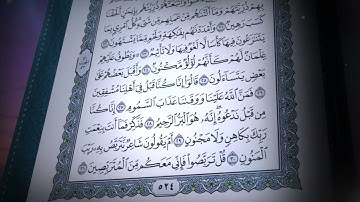 بِهِمْ ذُرِّيَّتَهُمْ وَمَآ أَلَتْنَٰهُم مِّنْ عَمَلِهِم مِّن شَىْءٍ كُلُّ ٱمْرِئٍۭ بِمَا
كَسَبَ رَهِينٌ ٢١ وَأَمْدَدْنَٰهُم بِفَٰكِهَةٍ وَلَحْمٍ مِّمَّا يَشْتَهُونَ ٢٢
يَتَنَٰزَعُونَ فِيهَا كَأْسًا لَّا لَغْوٌ فِيهَا وَلَا تَأْثِيمٌ ٢٣ ۞ وَيَطُوفُ عَلَيْهِمْ
غِلْمَانٌ لَّهُمْ كَأَنَّهُمْ لُؤْلُؤٌ مَّكْنُونٌ ٢٤ وَأَقْبَلَ بَعْضُهُمْ عَلَىٰ
بَعْضٍ يَتَسَآءَلُونَ ٢٥ قَالُوٓا۟ إِنَّا كُنَّا قَبْلُ فِىٓ أَهْلِنَا مُشْفِقِينَ
٢٦ فَمَنَّ ٱللَّهُ عَلَيْنَا وَوَقَىٰنَا عَذَابَ ٱلسَّمُومِ ٢٧ إِنَّا كُنَّا
مِن قَبْلُ نَدْعُوهُ إِنَّهُۥ هُوَ ٱلْبَرُّ ٱلرَّحِيمُ ٢٨ فَذَكِّرْ فَمَآ أَنتَ بِنِعْمَتِ
رَبِّكَ بِكَاهِنٍ وَلَا مَجْنُونٍ ٢٩ أَمْ يَقُولُونَ شَاعِرٌ نَّتَرَبَّصُ بِهِۦ رَيْبَ
ٱلْمَنُونِ ٣٠ قُلْ تَرَبَّصُوا۟ فَإِنِّى مَعَكُم مِّنَ ٱلْمُتَرَبِّصِينَ ٣١
٥٢٤